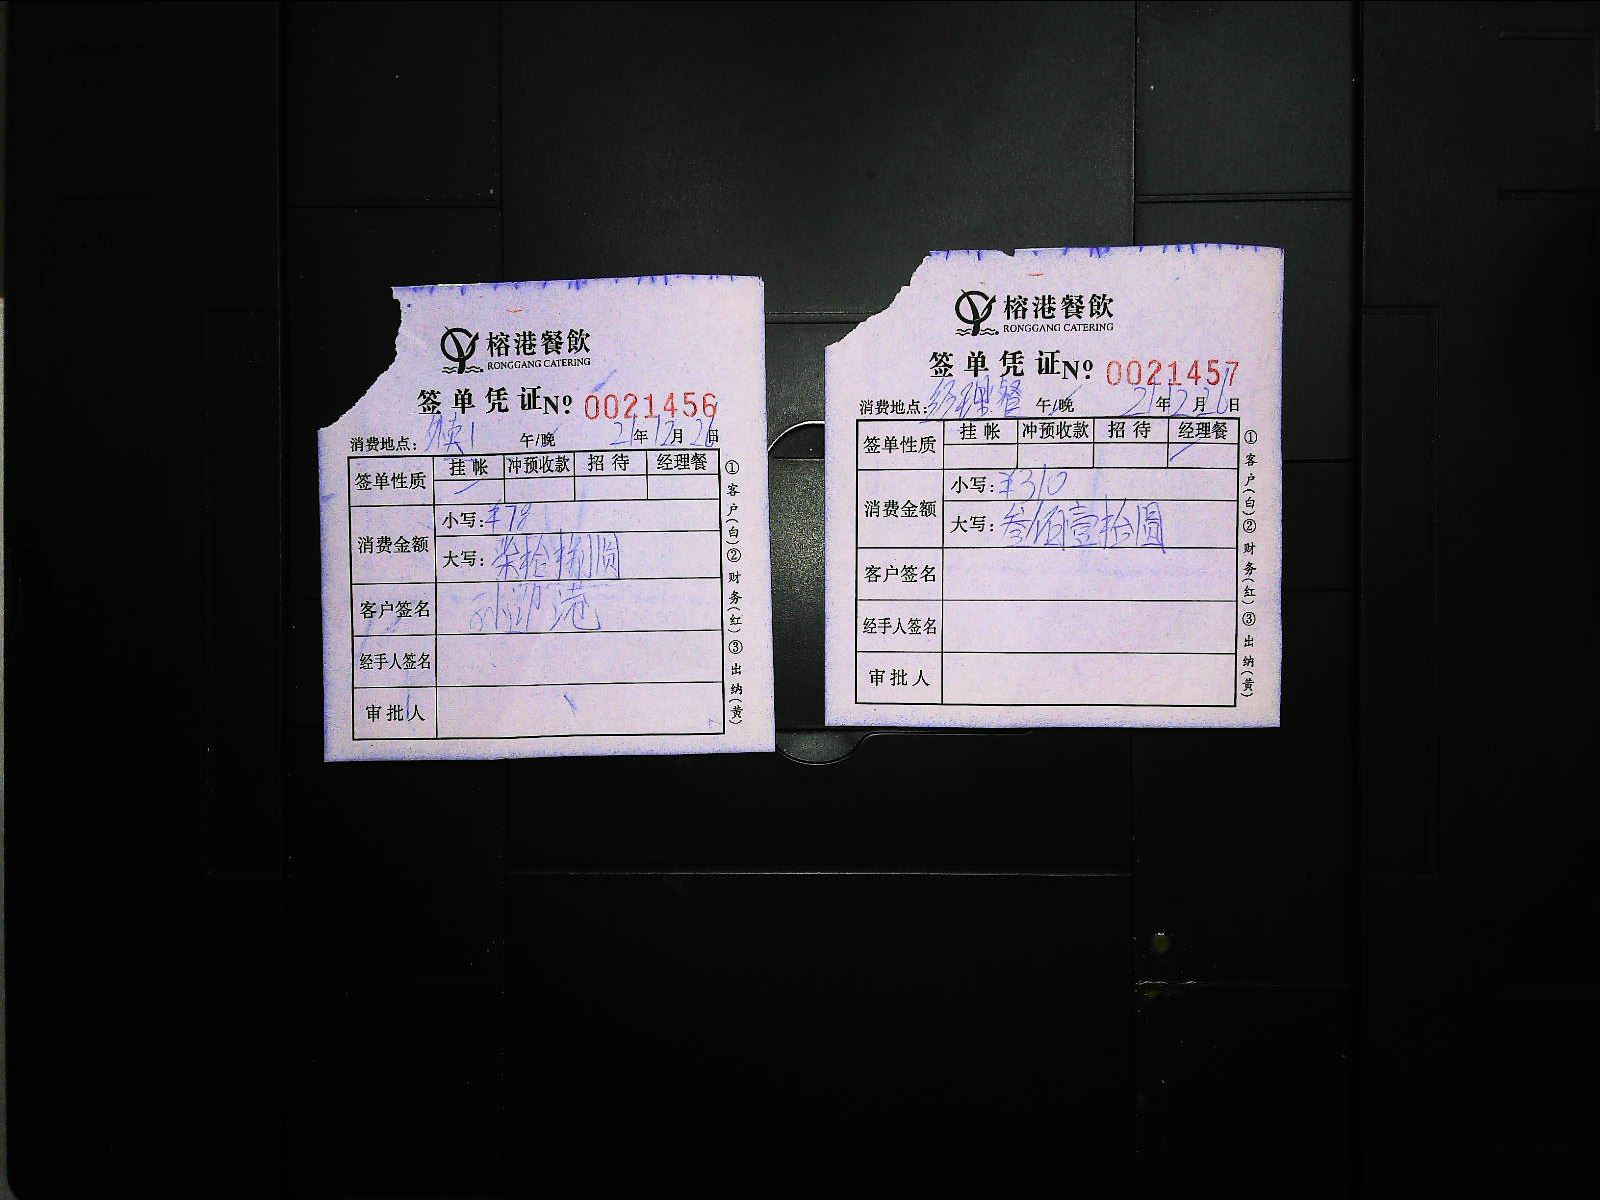 榕港餐飲
RONGGANG CATERING
签单凭证№ 0021456
消费地点： 午/晚 21年12月26日
签单性质 挂帐 冲预收款 招待 经理餐
消费金额 小写：¥78
大写：柒拾捌圆
客户签名
经手人签名
审批人
①客户(白)②财务(红)③出纳(黄)
榕港餐飲
RONGGANG CATERING
签单凭证№ 0021457
消费地点：经理餐 午/晚 21年12月26日
签单性质 挂帐 冲预收款 招待 经理餐
消费金额 小写：¥310
大写：叁佰壹拾圆
客户签名
经手人签名
审批人
①客户(白)②财务(红)③出纳(黄)